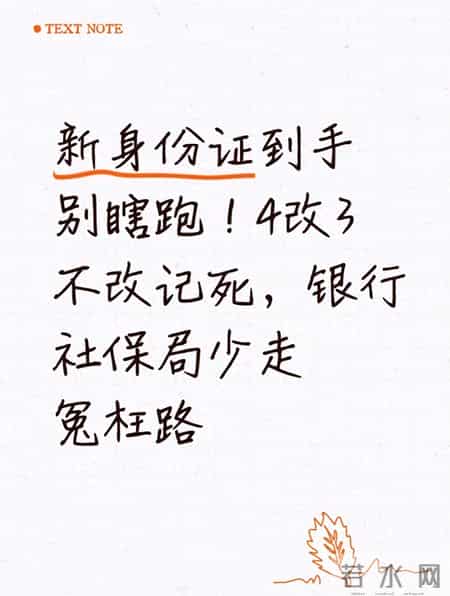 TEXT NOTE
新身份证到手
别瞎跑！4改3
不改记死，银行
社保局少走
冤枉路
若水网